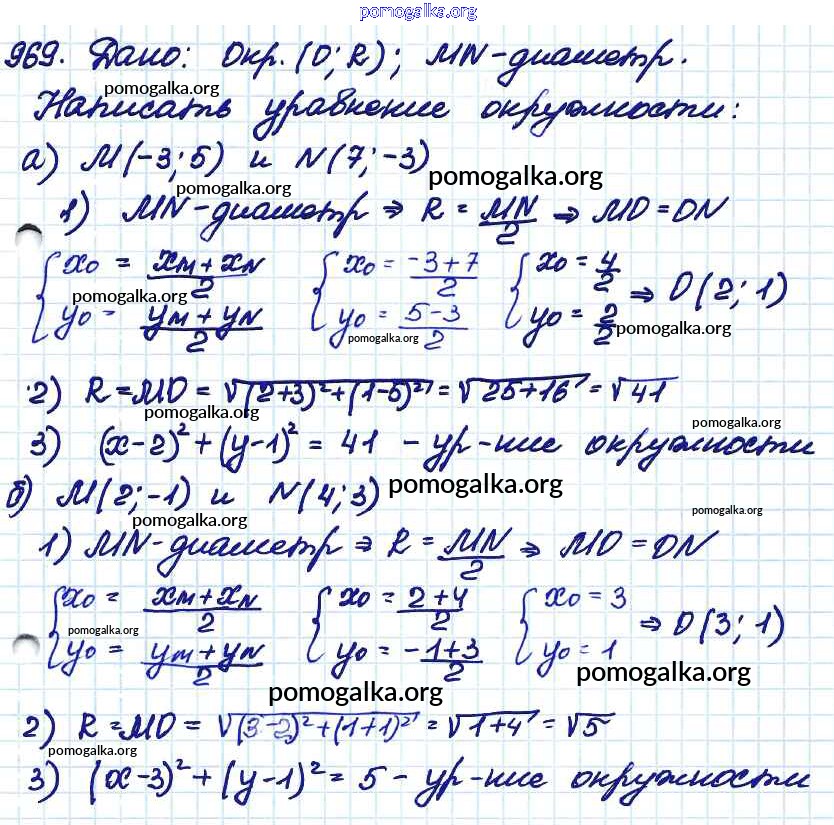 pomogalka.org
969. Дано: Окр. (O; R); MN-диаметр.
pomogalka.org
Написать уравнение окружности:
а) M(-3; 5) и N(7; -3)
pomogalka.org pomogalka.org
1) MN-диаметр ⇒ R = MN/2 ⇒ MO = ON
{ x₀ = (xM + xN)/2 { x₀ = (-3+7)/2 { x₀ = 4/2
pomogalka.org ⇒ O(2; 1)
y₀ = (yM + yN)/2 y₀ = (5-3)/2 y₀ = 2/2 pomogalka.org
pomogalka.org
2) R = MO = √((2+3)²+(1-5)²) = √(25+16) = √41
pomogalka.org pomogalka.org
3) (x-2)² + (y-1)² = 41 - ур-ние окружности
б) M(2; -1) и N(4; 3) pomogalka.org
pomogalka.org pomogalka.org
1) MN-диаметр ⇒ R = MN/2 ⇒ MO = ON
{ x₀ = (xM + xN)/2 { x₀ = (2+4)/2 { x₀ = 3
pomogalka.org ⇒ O(3; 1)
y₀ = (yM + yN)/2 y₀ = (-1+3)/2 y₀ = 1
pomogalka.org pomogalka.org
2) R = MO = √((3-2)²+(1+1)²) = √(1+4) = √5
pomogalka.org
3) (x-3)² + (y-1)² = 5 - ур-ние окружности